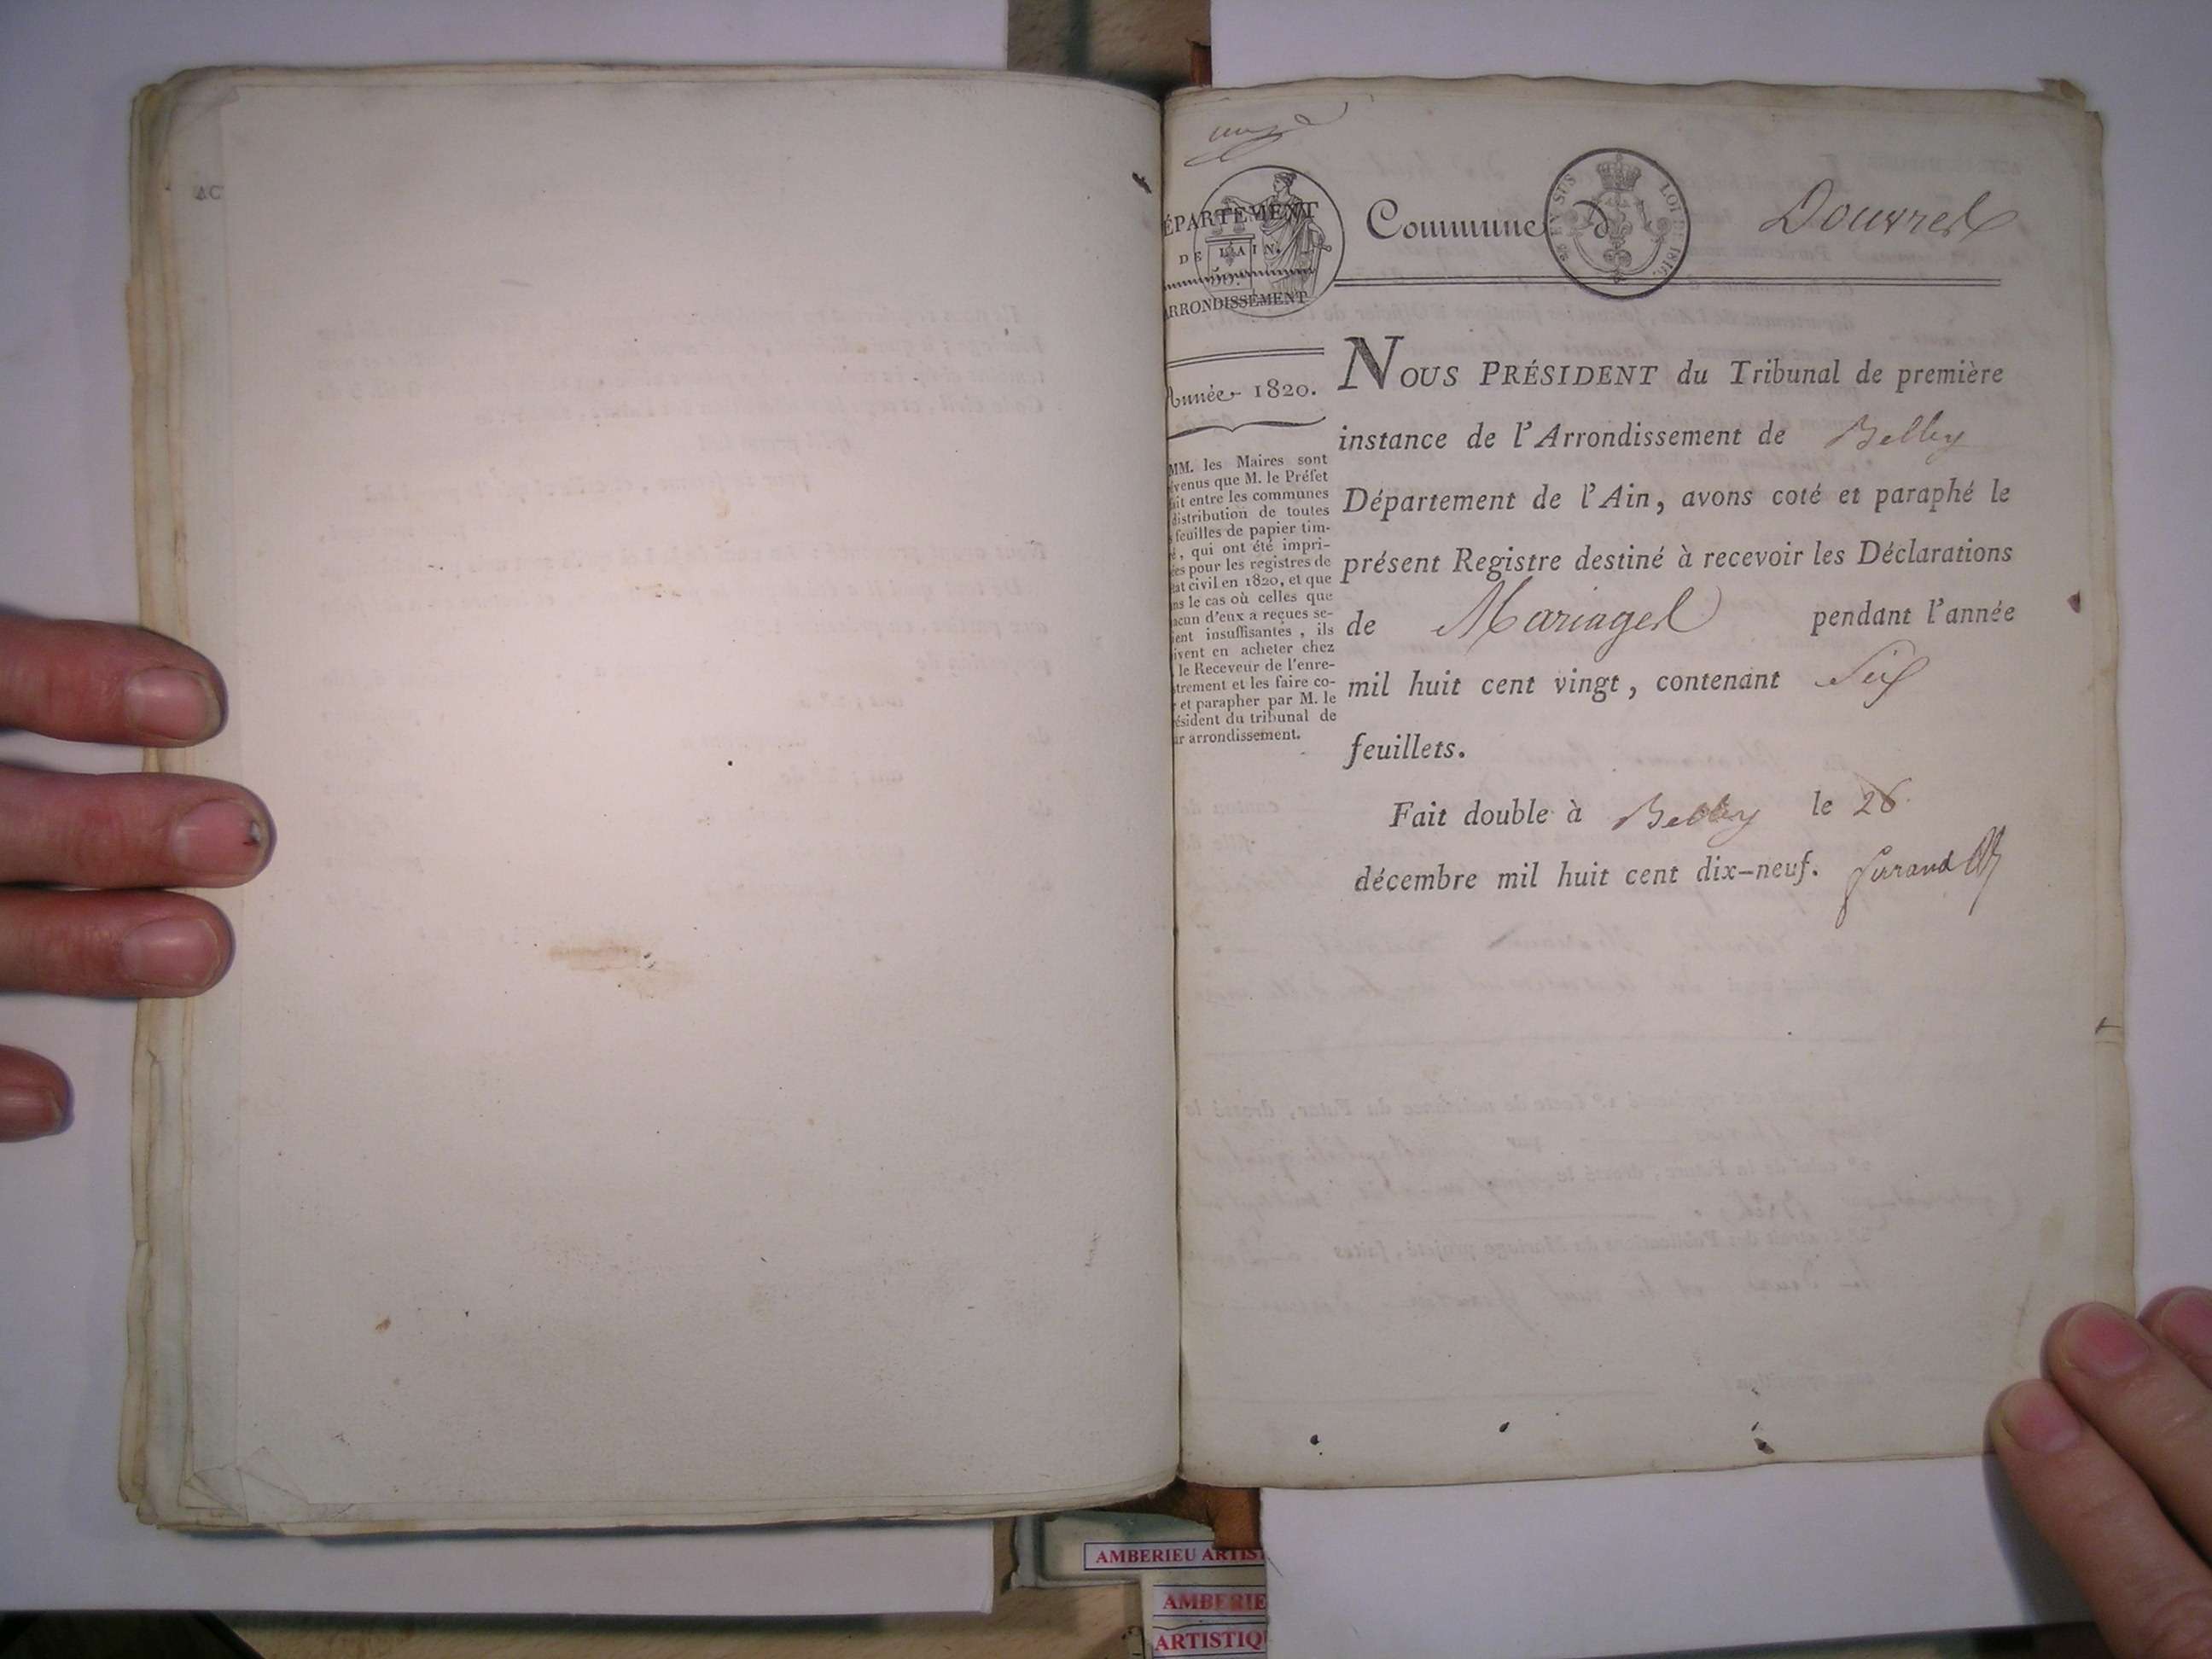 Commune de Douvres
ÉPARTEMENT
DE L'AIN.
ARRONDISSEMENT
Année 1820.
MM. les Maires sont
venus que M. le Préfet
ait entre les communes
distribution de toutes
feuilles de papier tim-
é, qui ont été impri-
es pour les registres de
at civil en 1820, et que
ns le cas où celles que
acun d'eux a reçues se-
ient insuffisantes, ils
ivent en acheter chez
le Receveur de l'enre-
trement et les faire co-
r et parapher par M. le
ésident du tribunal de
ur arrondissement.
NOUS PRÉSIDENT du Tribunal de première
instance de l'Arrondissement de Belley
Département de l'Ain, avons coté et paraphé le
présent Registre destiné à recevoir les Déclarations
de Mariages pendant l'année
mil huit cent vingt, contenant Six
feuillets.
Fait double à Belley le 26
décembre mil huit cent dix-neuf.
AMBERIEU ARTIS
AMBERIE
ARTISTIQ